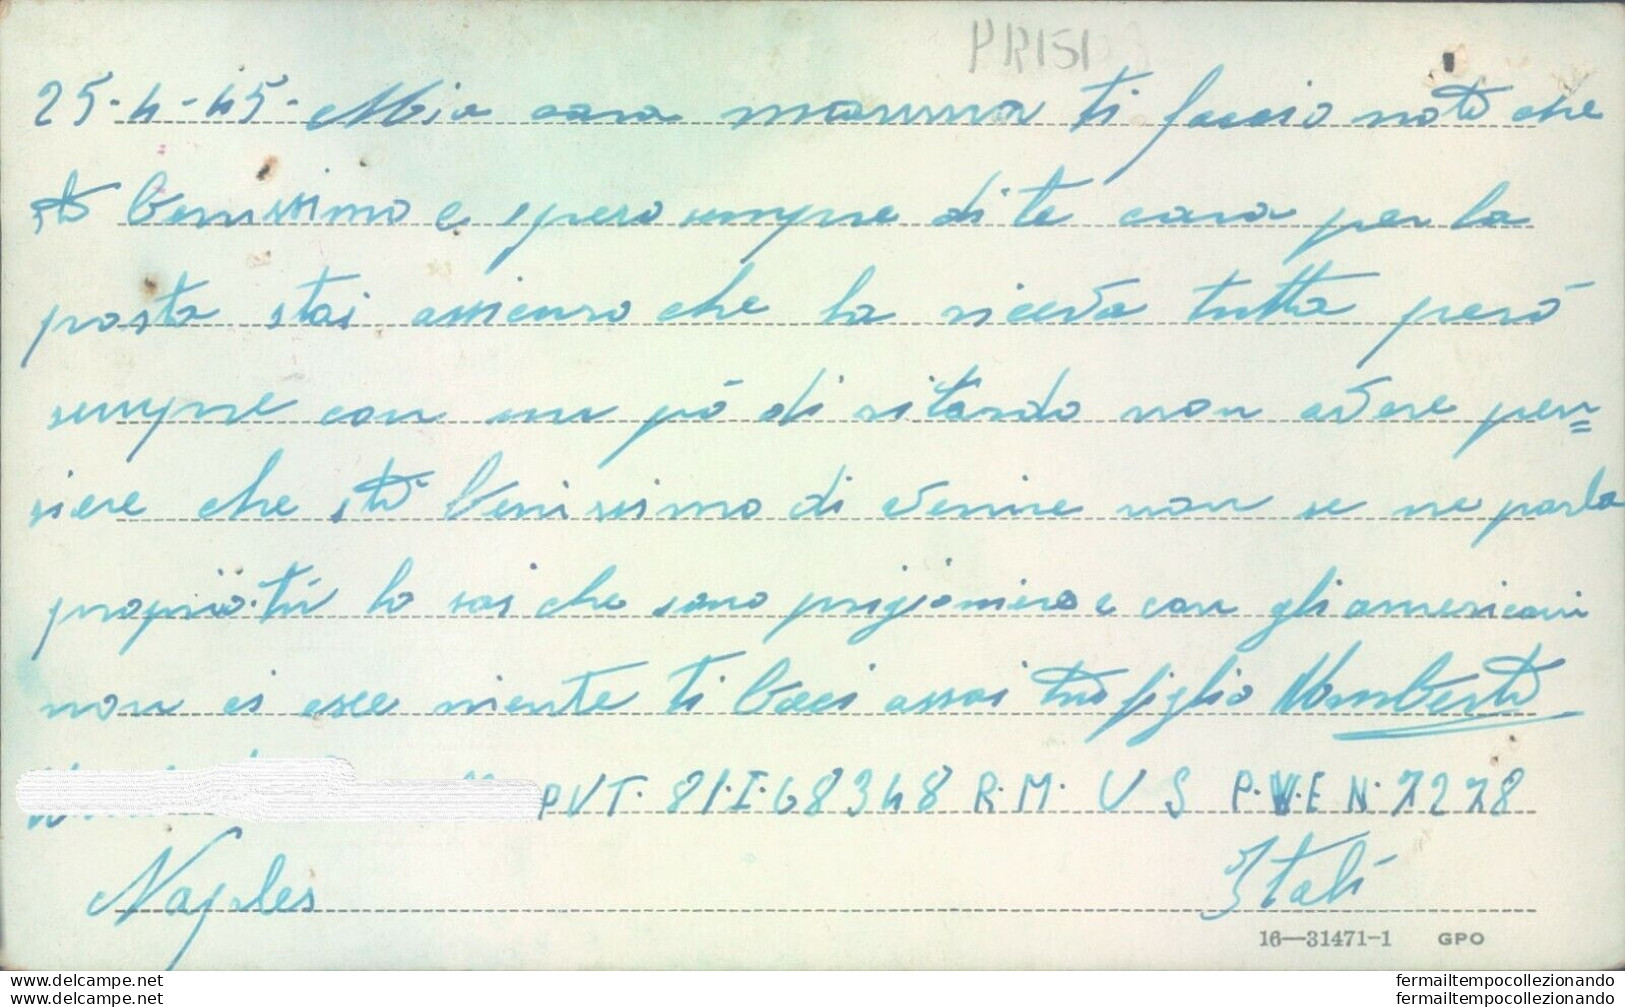 PRISI
25-4-45- Mia cara mamma ti faccio noto che
stò benissimo e spero sempre di te cara per la
posta stai assicuro che la riceva tutta però
sempre con un pò di ritardo non avere pen=
siere che stò benissimo di venire non se ne parla
proprio. tù lo sai che sono prigioniero e con gli americani
non ci esce niente ti baci assai tuo figlio Umberto
PVT. 81.I.68348 R.M. U S P.W.E N. 7278
Naples Italì
16—31471-1 GPO
fermailtempocollezionando
fermailtempocollezionando
fermailtempocollezionando
fermailtempocollezionando